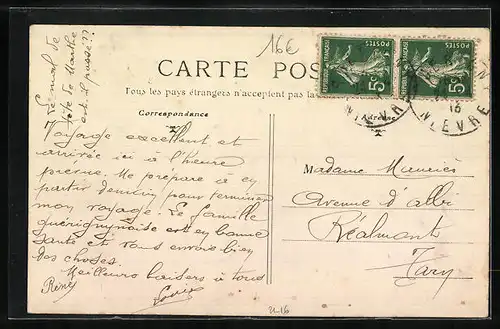 16€
Le mal de
tête de Marthe
est-il passé ??
CARTE POS
Tous les pays étrangers n'acceptent pas la
Correspondance
Adresse
REPUBLIQUE FRANÇAISE
POSTES
5c
REPUBLIQUE FRANÇAISE
POSTES
5c
NIEVRE
NIEVRE
Voyage excellent et
arrivée ici à l'heure
presue. Me prépare à en
partir demain pour terminer
mon voyage. La famille
guérignynoise est en bonne
santé et vous envoie bien
des choses.
Meilleurs baisers à tous
René
Louis
Madame Mauriès
Avenue d'albi
Réalmont
Tarn
21-16